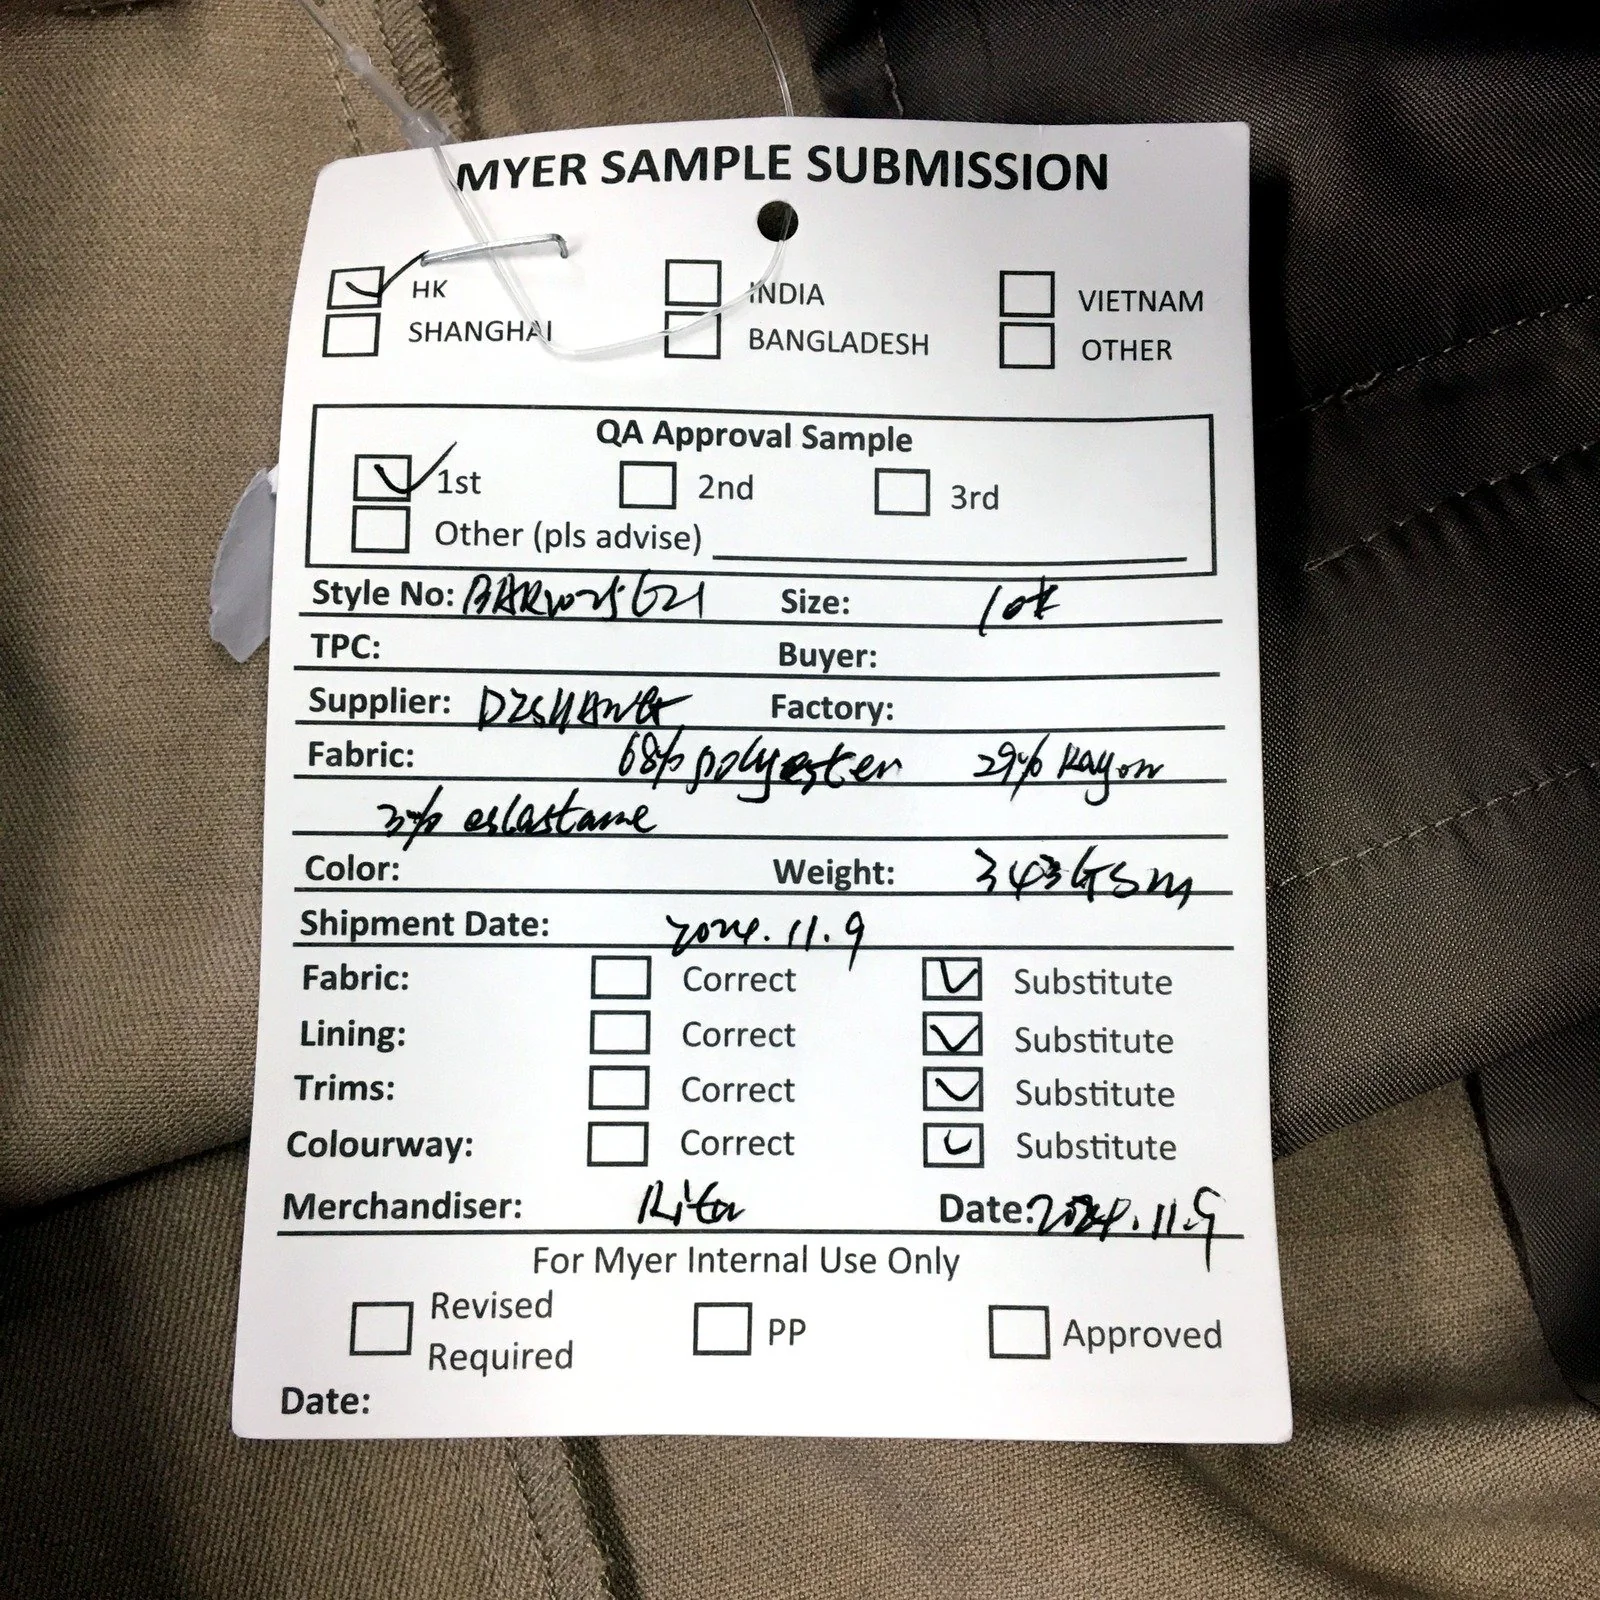 MYER SAMPLE SUBMISSION
HK INDIA VIETNAM
SHANGHAI BANGLADESH OTHER
QA Approval Sample
1st 2nd 3rd
Other (pls advise)
Style No: Size:
TPC: Buyer:
Supplier: Factory:
Fabric: 68% polyester 29% Rayon
3%
Color: Weight: 343GSM
Shipment Date: 2024.11.9
Fabric: Correct Substitute
Lining: Correct Substitute
Trims: Correct Substitute
Colourway: Correct Substitute
Merchandiser: Rita Date: 2024.11.9
For Myer Internal Use Only
Revised
Required PP Approved
Date: